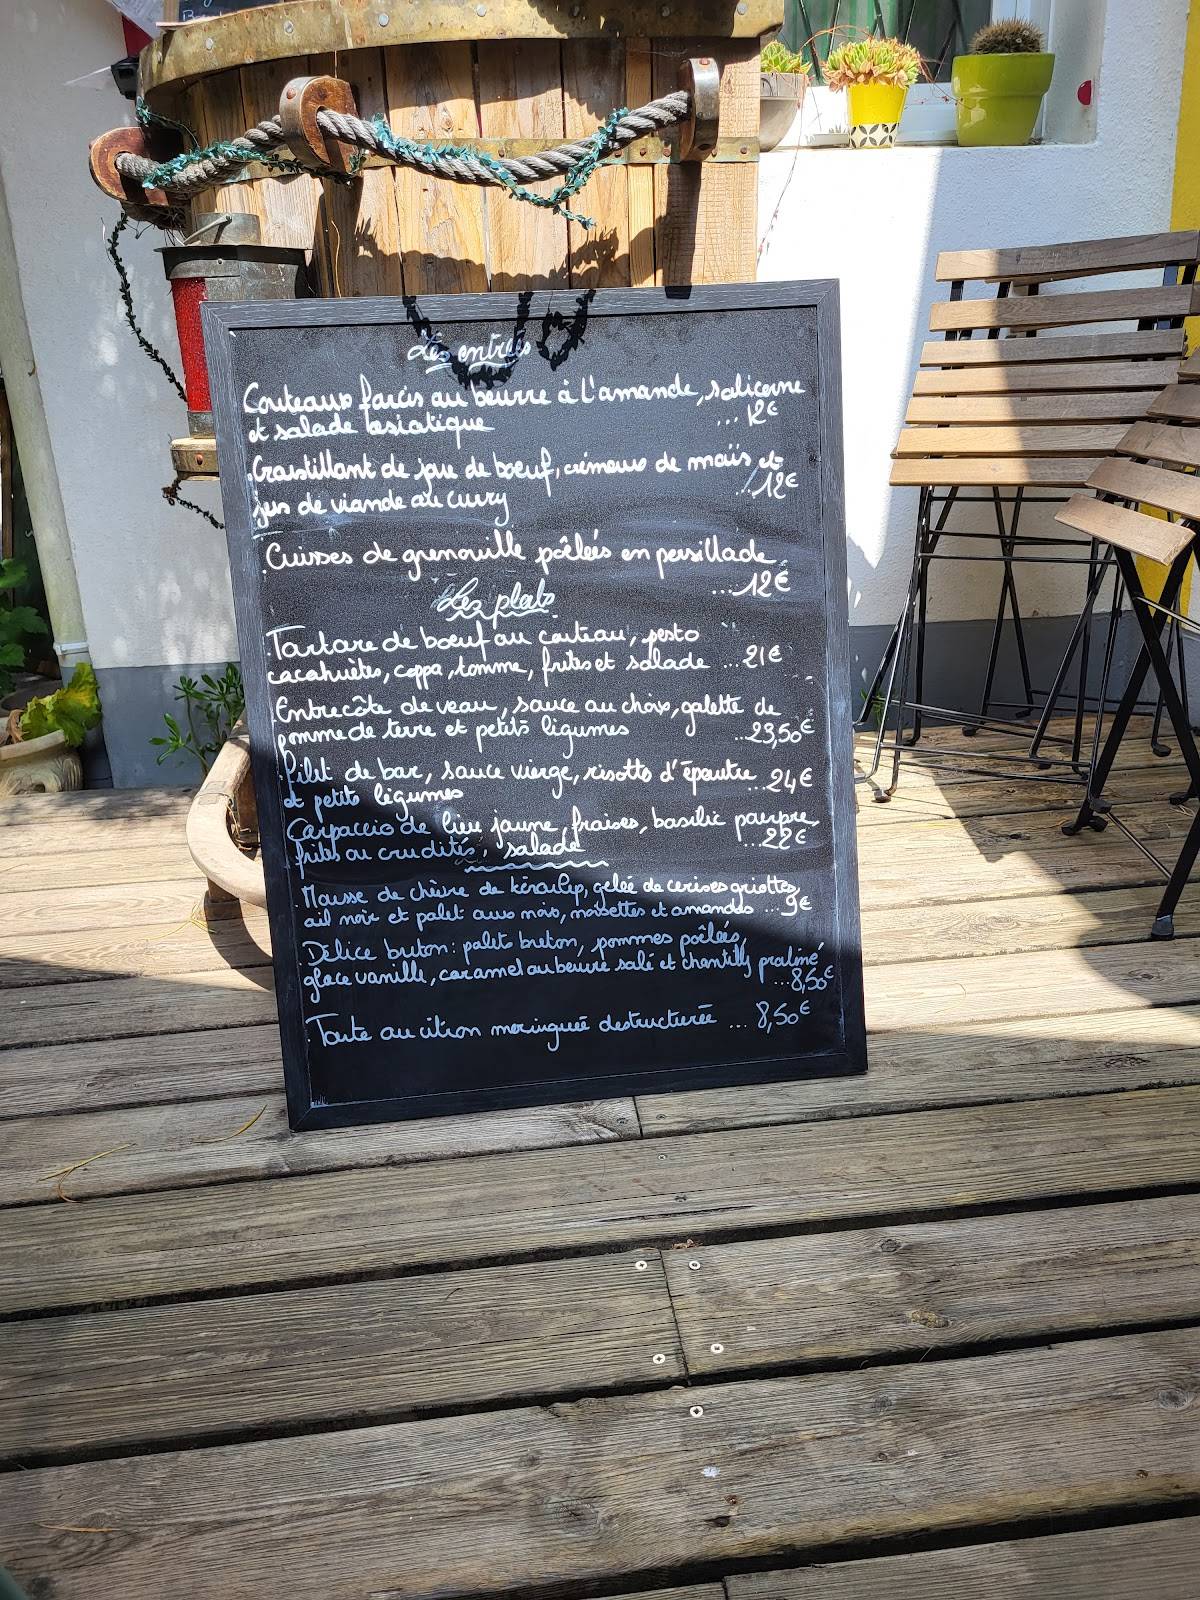 Les entrées
Couteaux farcis au beurre à l'amande, salicorne
et salade asiatique ... 12€
. Croustillant de joue de boeuf, crémeux de maïs et
jus de viande au curry ... 12€
. Cuisses de grenouille pôêleés en persillade
... 12€
Les plats
. Tartare de boeuf au couteau, pesto
cacahuètes, coppa, tomme, frites et salade ... 21€
. Entrecôte de veau, sauce au choix, galette de
pomme de terre et petits légumes ... 23,50€
. Filet de bar, sauce vierge, risotto d'épeautre ... 24€
et petits légumes
Carpaccio de lieu jaune, fraises, basilic pourpre,
frites ou crudités, salade ... 22€
. Mousse de chèvre de, gelée de cerises griottes,
ail noir et palet aux noix, noisettes et amandes ... 9€
. Délice breton: palets breton, pommes poêlées,
glace vanille, caramel au beurre salé et chantilly praliné
... 8,50€
. Tarte au citron meringuée destructurée ... 8,50€